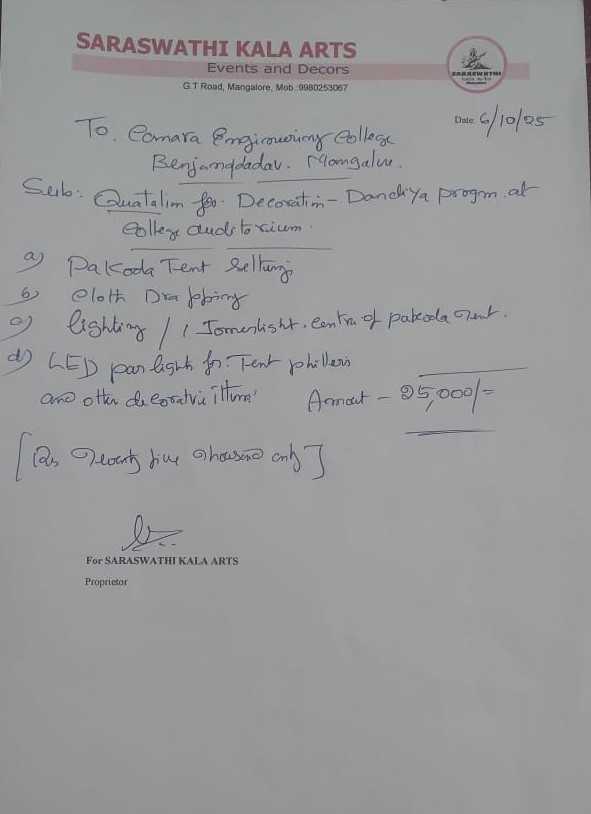 SARASWATHI KALA ARTS
Events and Decors
G.T Road, Mangalore, Mob.:9980253067
SARASWATHI
Date: 6/10/25
To. Canara Engineering College
Benjangdadav. Mangalure.
Sub: Quatalim for Decoratim - Dandiya progm. at
College auditorium.
a) Pakoda Tent Setting
b) Cloth Drapping
c) lighting / centre of pakoda Tent.
d) LED par light for Tent phillers
and other decorative Ittms' Amout - 25,000/=
[Rs Twenty five Thousand only]
For SARASWATHI KALA ARTS
Proprietor